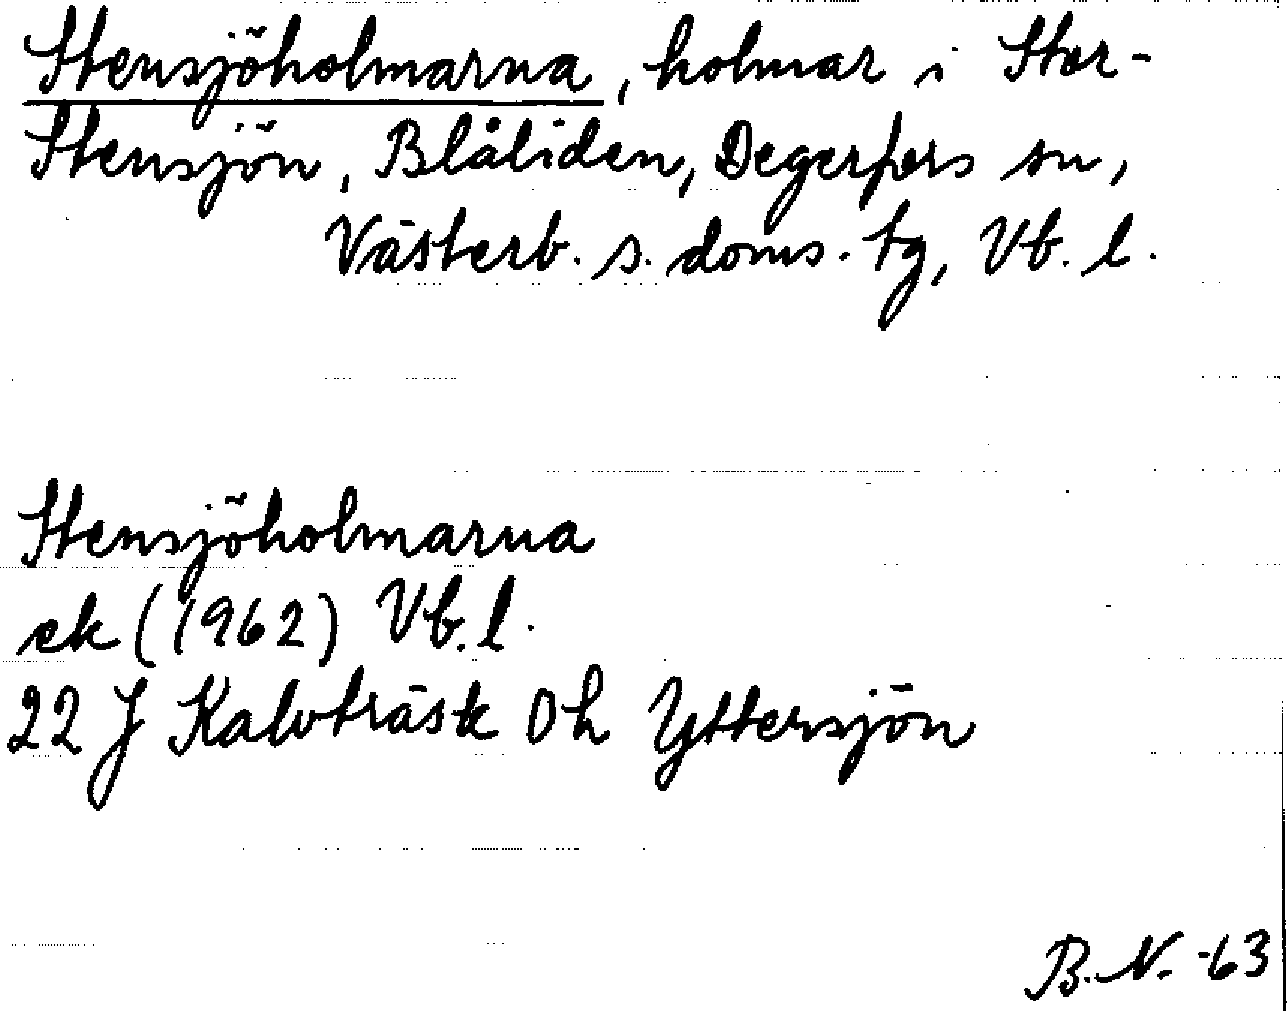 Stensjöholmarna, holmar i Stor-
Stensjön, Blåliden, Degerfors sn,
Västerb. s. doms. tg, Vb. l.
Stensjöholmarna
ek (1962) Vb. l.
22 J Kalvträsk 0h Yttersjön
B. N. -63